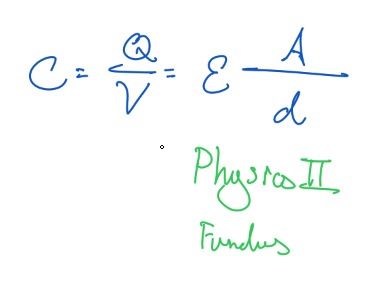 C = Q/V = ε A/d
Physics II
Fundus